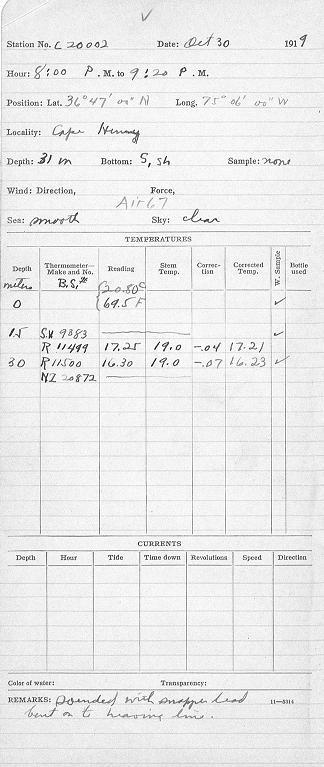 ✓
Station No. C 20002 Date: Oct 30 1919
Hour: 8:00 P.M. to 9:20 P.M.
Position: Lat. 36° 47' 00" N Long. 75° 06' 00" W
Locality: Cape Henry
Depth: 31 m Bottom: S, Sh Sample: none
Wind: Direction, Force,
Air 67
Sea: smooth Sky: clear
TEMPERATURES
Depth Thermometer—Make and No. Reading Stem Temp. Correction Corrected Temp. W. Sample Bottle used
meters B.S. 20.80 C
0 69.5 F ✓
15 S.W 9383 ✓
R 11499 17.25 19.0 -.04 17.21
30 R 11500 16.30 19.0 -.07 16.23 ✓
NZ 20872
CURRENTS
Depth Hour Tide Time down Revolutions Speed Direction
Color of water: Transparency:
REMARKS: Sounded with snapper lead 11—5314
bent on to heaving line.